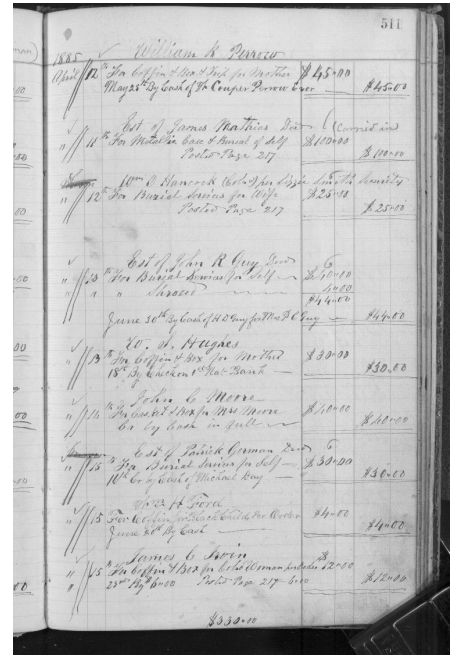 511
1885 William K Perrow
April 12th For Coffin & Box & Trip for Mother $45.00
May 25th By Cash of Cooper Perrow $45.00
Est of James Mathies Decd (Carried in)
" 11th For Metallic Case & Burial of Self $100.00
Posted Page 217 $100.00
Wm Hancock Cold per Lizzie Smith Security
" 12th For Burial Services for Wife $25.00
Posted Page 217 $25.00
Est of John R Guy Decd
" 13th For Burial Services for Self $40.00
" " " Shroud 4.00
$44.00
June 20th By Cash of H O Guy for Mrs Guy $44.00
W. S. Hughes
" 13th For Coffin & Box for Mother $30.00
18th By Check on 1st Nat Bank $30.00
John C Moore
" 14th For Casket & Box for Mrs Moore $40.00
Cr by Cash in full $40.00
Est of Patrick Gorman Decd
" 15th For Burial Services for Self $30.00
18th Cr by Cash of Michael Day $30.00
H Ford
" 15 For Coffin for Black Child per Order $4.00
June By Cash $4.00
James C Irvin
" 15th For Coffin & Box for Cold Woman per Order $12.00
" 23rd By 6.00 Posted Page 217 6.00 $12.00
$330.00